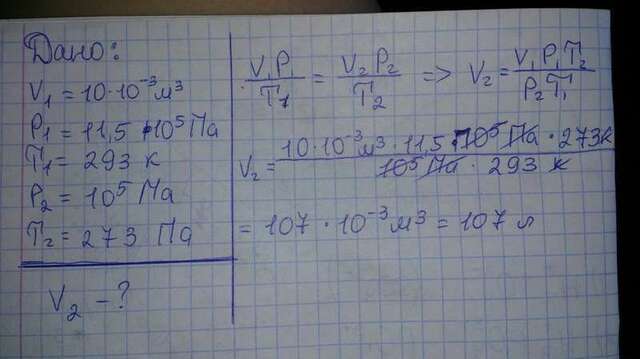 Дано:
V₁ = 10·10⁻³ м³
P₁ = 11,5 · 10⁵ Па
T₁ = 293 к
P₂ = 10⁵ Па
T₂ = 273 Па
V₂ - ?
V₁P₁/T₁ = V₂P₂/T₂ => V₂ = V₁P₁T₂/P₂T₁
V₂ = 10·10⁻³ м³ · 11,5 · 10⁵ Па · 273к / 10⁵ Па · 293 к
= 107 · 10⁻³ м³ = 107 л